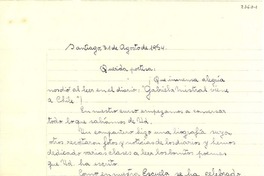 Santiago, 31 de Agosto de 1954.
Querida poetisa:
¡Que inmensa alegría
nos dió al leer en el diario: "Gabriela Mistral viene
a Chile"!
En nuestro curso empezamos a conversar
todo lo que sabíamos de Ud.
Un compañero hizo una biografía suya,
otros recortaron fotos y noticias de los diarios y hemos
dedicado varias clases a leer los bonitos poemas
que Ud. ha escrito.
Como en nuestra Escuela se ha celebrado